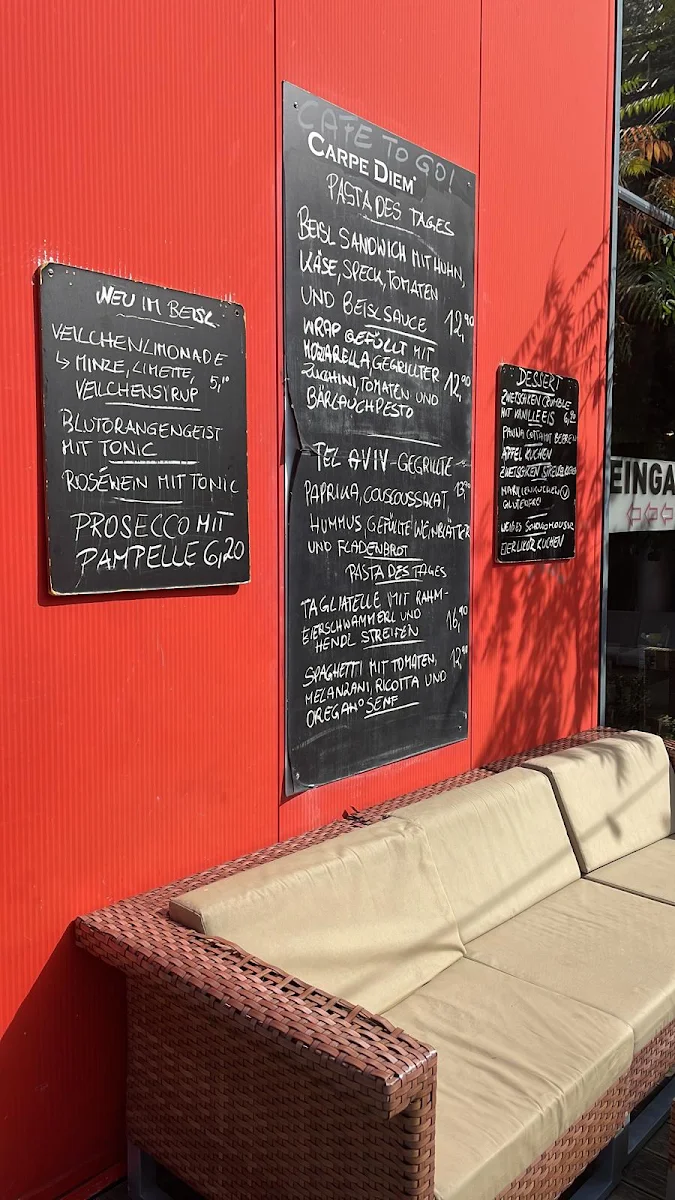 NEU IM BEISL
VEILCHENLIMONADE
↳ MINZE, LIMETTE,
VEILCHENSYRUP 5,10
BLUTORANGENGEIST
MIT TONIC
ROSÉWEIN MIT TONIC
PROSECCO MIT
PAMPELLE 6,20
CAFE TO GO!
CARPE DIEM
PASTA DES TAGES
BEISL SANDWICH MIT HUHN,
KÄSE, SPECK, TOMATEN
UND BEISLSAUCE 12,90
WRAP GEFÜLLT MIT
MOZZARELLA, GEGRILLTER
ZUCCHINI, TOMATEN UND 12,90
BÄRLAUCHPESTO
TEL AVIV - GEGRILLTE
PAPRIKA, COUSCOUSSALAT,
HUMMUS, GEFÜLLTE WEINBLÄTTER
UND FLADENBROT
PASTA DES TAGES
TAGLIATELLE MIT RAHM-
EIERSCHWAMMERL UND 16,90
HENDL STREIFEN
SPAGHETTI MIT TOMATEN, 12,90
MELANZANI, RICOTTA UND
OREGANO SENF
DESSERT
ZWETSCHKEN CRUMBLE
MIT VANILLEEIS 6,90
PANNA COTTA MIT BEEREN
APFEL KUCHEN
ZWETSCHKEN
MARILLENKUCHEN V
GLUTENFREI
WEISSES SCHOKOMOUSSE
EIERLIKÖR KUCHEN
EINGA